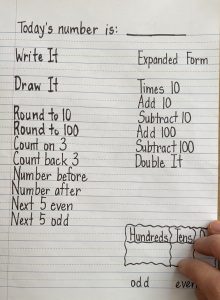 Today's number is: ______
Write It
Draw It
Round to 10
Round to 100
Count on 3
Count back 3
Number before
Number after
Next 5 even
Next 5 odd
Expanded Form
Times 10
Add 10
Subtract 10
Add 100
Subtract 100
Double It
Hundreds Tens
odd